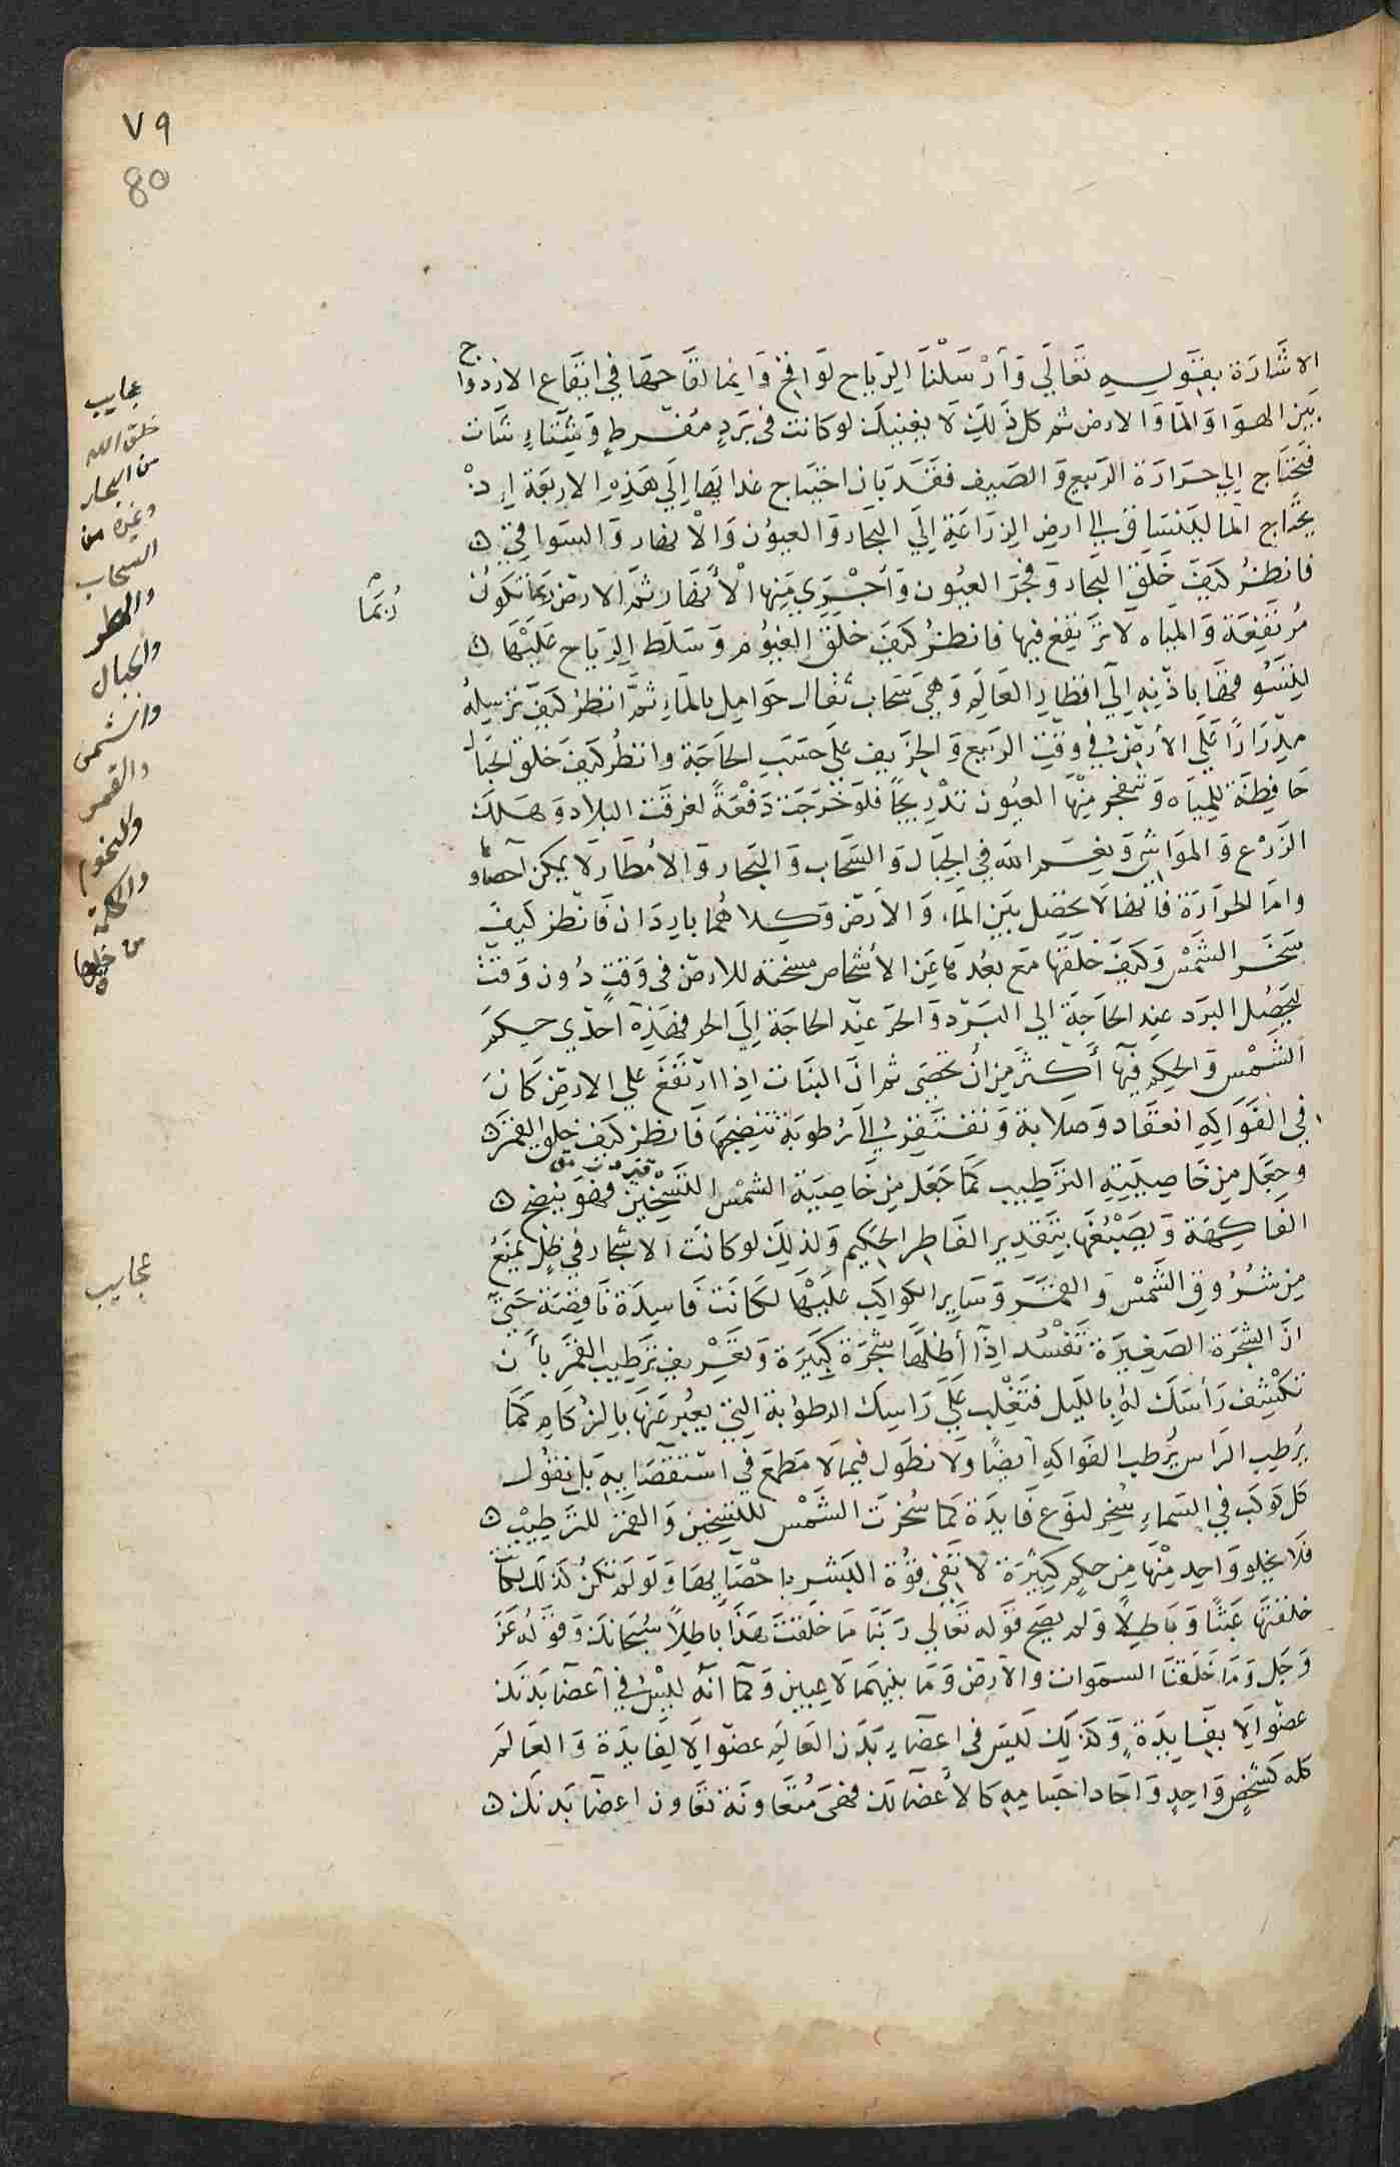 ٧٩
80
الاشَارَة بقَولِهِ تَعَالَي وَأرْسَلْنَا الرِيَاح لَوَاقِحْ وَانما القَاحهَا في ايقَاع الازدواج
بَيْن الهوَا وَالمَا وَالارض ثم كل ذَلِكَ لَا يغنيك لو كانت في بَردٍ مُفْرطٍ وَشِتَاءٍ شَات
فتحتَاج إلي حرَارَة الرَبيع وَالصَيف فقَد بَان احتيَاج غذايهَا إلَي هَذِهِ الاربعَة اذ
يحتَاج المَا لينسَاق إلي ارض الزرَاعَة إلَي البحَار وَالعيُون وَالْانهار وَالسوَاقي
فانظرُ كيَفَ خَلَقَ البحَار وَفجرَ العيُون وَأجْرَي مِنها الْأنهَار ثمَّ الارضَ رُبَّمَا تكوُن
مُرتفِعَة وَالميَاه لَا تَرتفِع فيها فانظرُ كيَفَ خَلقَ الغيُوم وَسَلط الرِيَاح عَلَيْهَا
لِتَسُوقهَا باذنِهِ إلَي اقطارِ العَالَمِ وَهِيَ سَحَاب ثقال حوَامِل بالمَاءِ ثمَّ انظرُ كيَفَ يُرسِلهُ
مِدرَارًا عَلَي الأرضِ في وقتِ الرَبيع وَالخرَيف عَلي حَسَبَ الحَاجَة وانظُر كيَفَ خلق الجبَال
حَافِظَة للِميَاه وَتتفجر مِنْهَا العيُون تدْرِيجًا فلوَ خرَجَت دَفْعَةً لغرقَت البلاد وَهلك
الزَرْع وَالموَاشي وَنعِم الله في الجبَال وَالسَحَاب وَالبحَار وَالأمطَار لَا يمكن احصاوها
وامَا الحرَارَة فَانهَا لَا تحصُل بَيْن المَاء وَالأرض وَكلاهُما بارِدَان فَانظر كيَفَ
سَخر الشَمْس وَكيَفَ خَلَقَهَا مَع بعُدهَا عَن الأشخاص مسخنة للارض في وَقتٍ دُون وَقتْ
ليحصُل البرَد عِند الحَاجَة الي البَرد وَالحَر عند الحاجَة إلَي الحر فهَذِهِ احدَي حِكم
الشَمْس وَالحِكم فيهَا أَكثَر مِن أن تحصَى ثم انَ النبَات اذِا ارتَفَعَ عَلي الارضِ كانَ
في الفَوَاكِهِ انعقَاد وَصلابة وَتفتَقِر إلَي رُطوبَة تُنضِجُهَا فَانظر كيَف خلق القَمَر
وَجَعَل مِن خَاصِيَتِهِ التَرطِيب كَمَا جَعَل مِن خَاصِيَة الشمْس التَسْخِين فهوَ ينضِج
الفاكِهَة وَيَصَبْغُهَا بِتَقدِير الفَاطِر الحَكِيم وَلذلِكَ لو كانَت الاشجَار في ظِل يمنعُ
مِن شرُوقِ الشَمْس وَالقَمَر وَسَاير الكوَاكِب عَلَيْهَا لكَانَت فَاسِدَة نَاقِصَة حَتَّي
انَ الشجَرَة الصَغِيرَة تَفْسُد اذِا أظلهَا شجَرَة كَبيرَة وَتعَرِيف تَرطِيب القَمَر بأن
تكشِف رَأسَك لهُ بِالليَل فتَغْلِب عَلَي رَاسِكَ الرطوُبة التِي يعُبر عَنهَا بِالزُكامِ كمَا
يرُطِب الرَاس يُرطب الفوَاكهِ أيضًا ولَا نطوَل فيمَا لَا مَطمَع في استِقصَايهِ بَل نقوُل
كل كوكب في السَماءِ سُخر لنوَع فَايدَة كَمَا سُخرَت الشَمْس للتسخِين وَالقمَر للترَطِيب
فلَا يخلو وَاحِد مِنْهَا مِن حِكم كثيرَة لَا تفي قوُة البشر باحْصَايهَا وَلَو لمْ تكنُ كذَلك لكَان
خلقهَا عَبَثًا وَبَاطِلًا وَلم يصَح قوَله تعَالي رَبنَا مَا خَلقتَ هَذَا بَاطِلًا سُبحَانَك وَقوَلُهُ عَزَ
وَجَل وَمَا خَلَقنَا السموَات وَالأرض وَمَا بينهمَا لَاعِبين وَكمَا انهُ لَيْسَ في أعضَا بدَنك
عضوٌ الَا بِفَايدَةٍ وَكذَلِكَ لَيسَ في اعِضَاء بَدَن العَالَم عضوٌ الَا لفَايدَة وَالعَالَم
كله كشخصٍ وَاحِدٍ وَاحَاد اجسَامِهِ كالأعضَا لك فهَى مُتعَاونَة تعَاون اعضَا بَدنك
رُبَّمَا
عجايب
خلق الله
من البحار
وغيره من
السحاب
والمطر
والجبال
والشمس
والقمر
والنجوم
والحكمة
من خلقها
عجايب